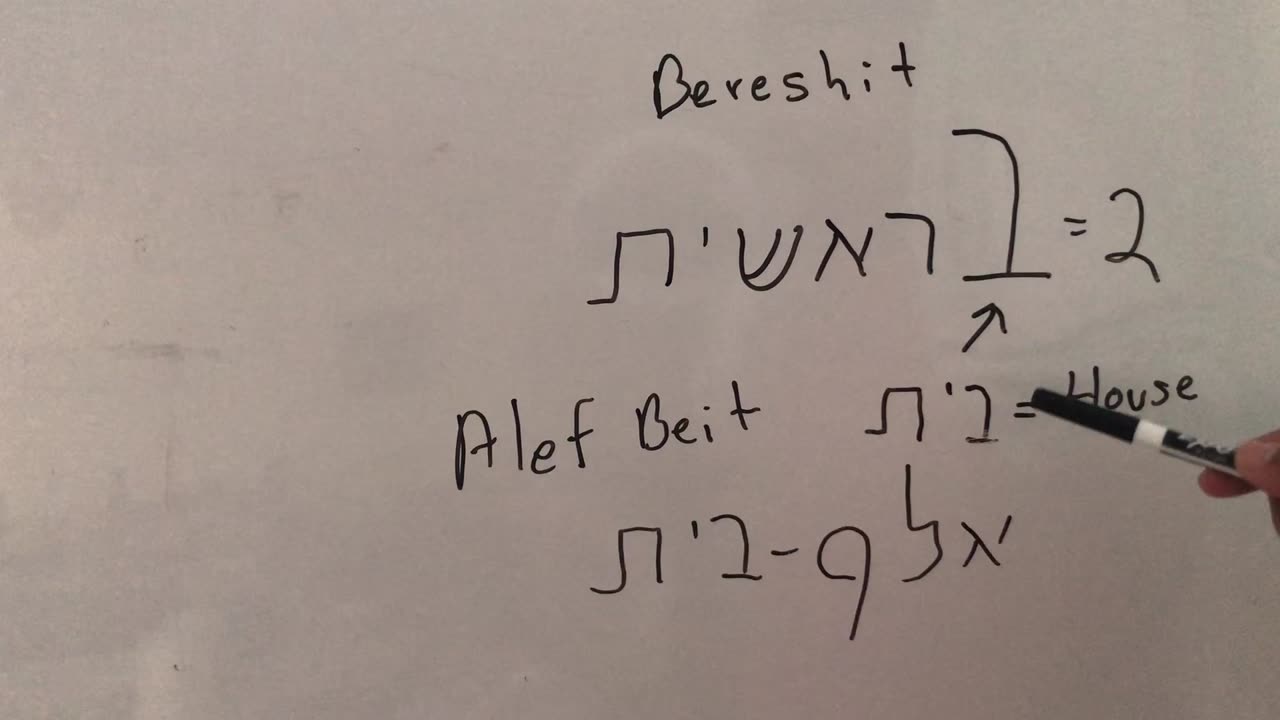 Bereshit
בראשית = 2
Alef Beit בית = House
אלף-בית